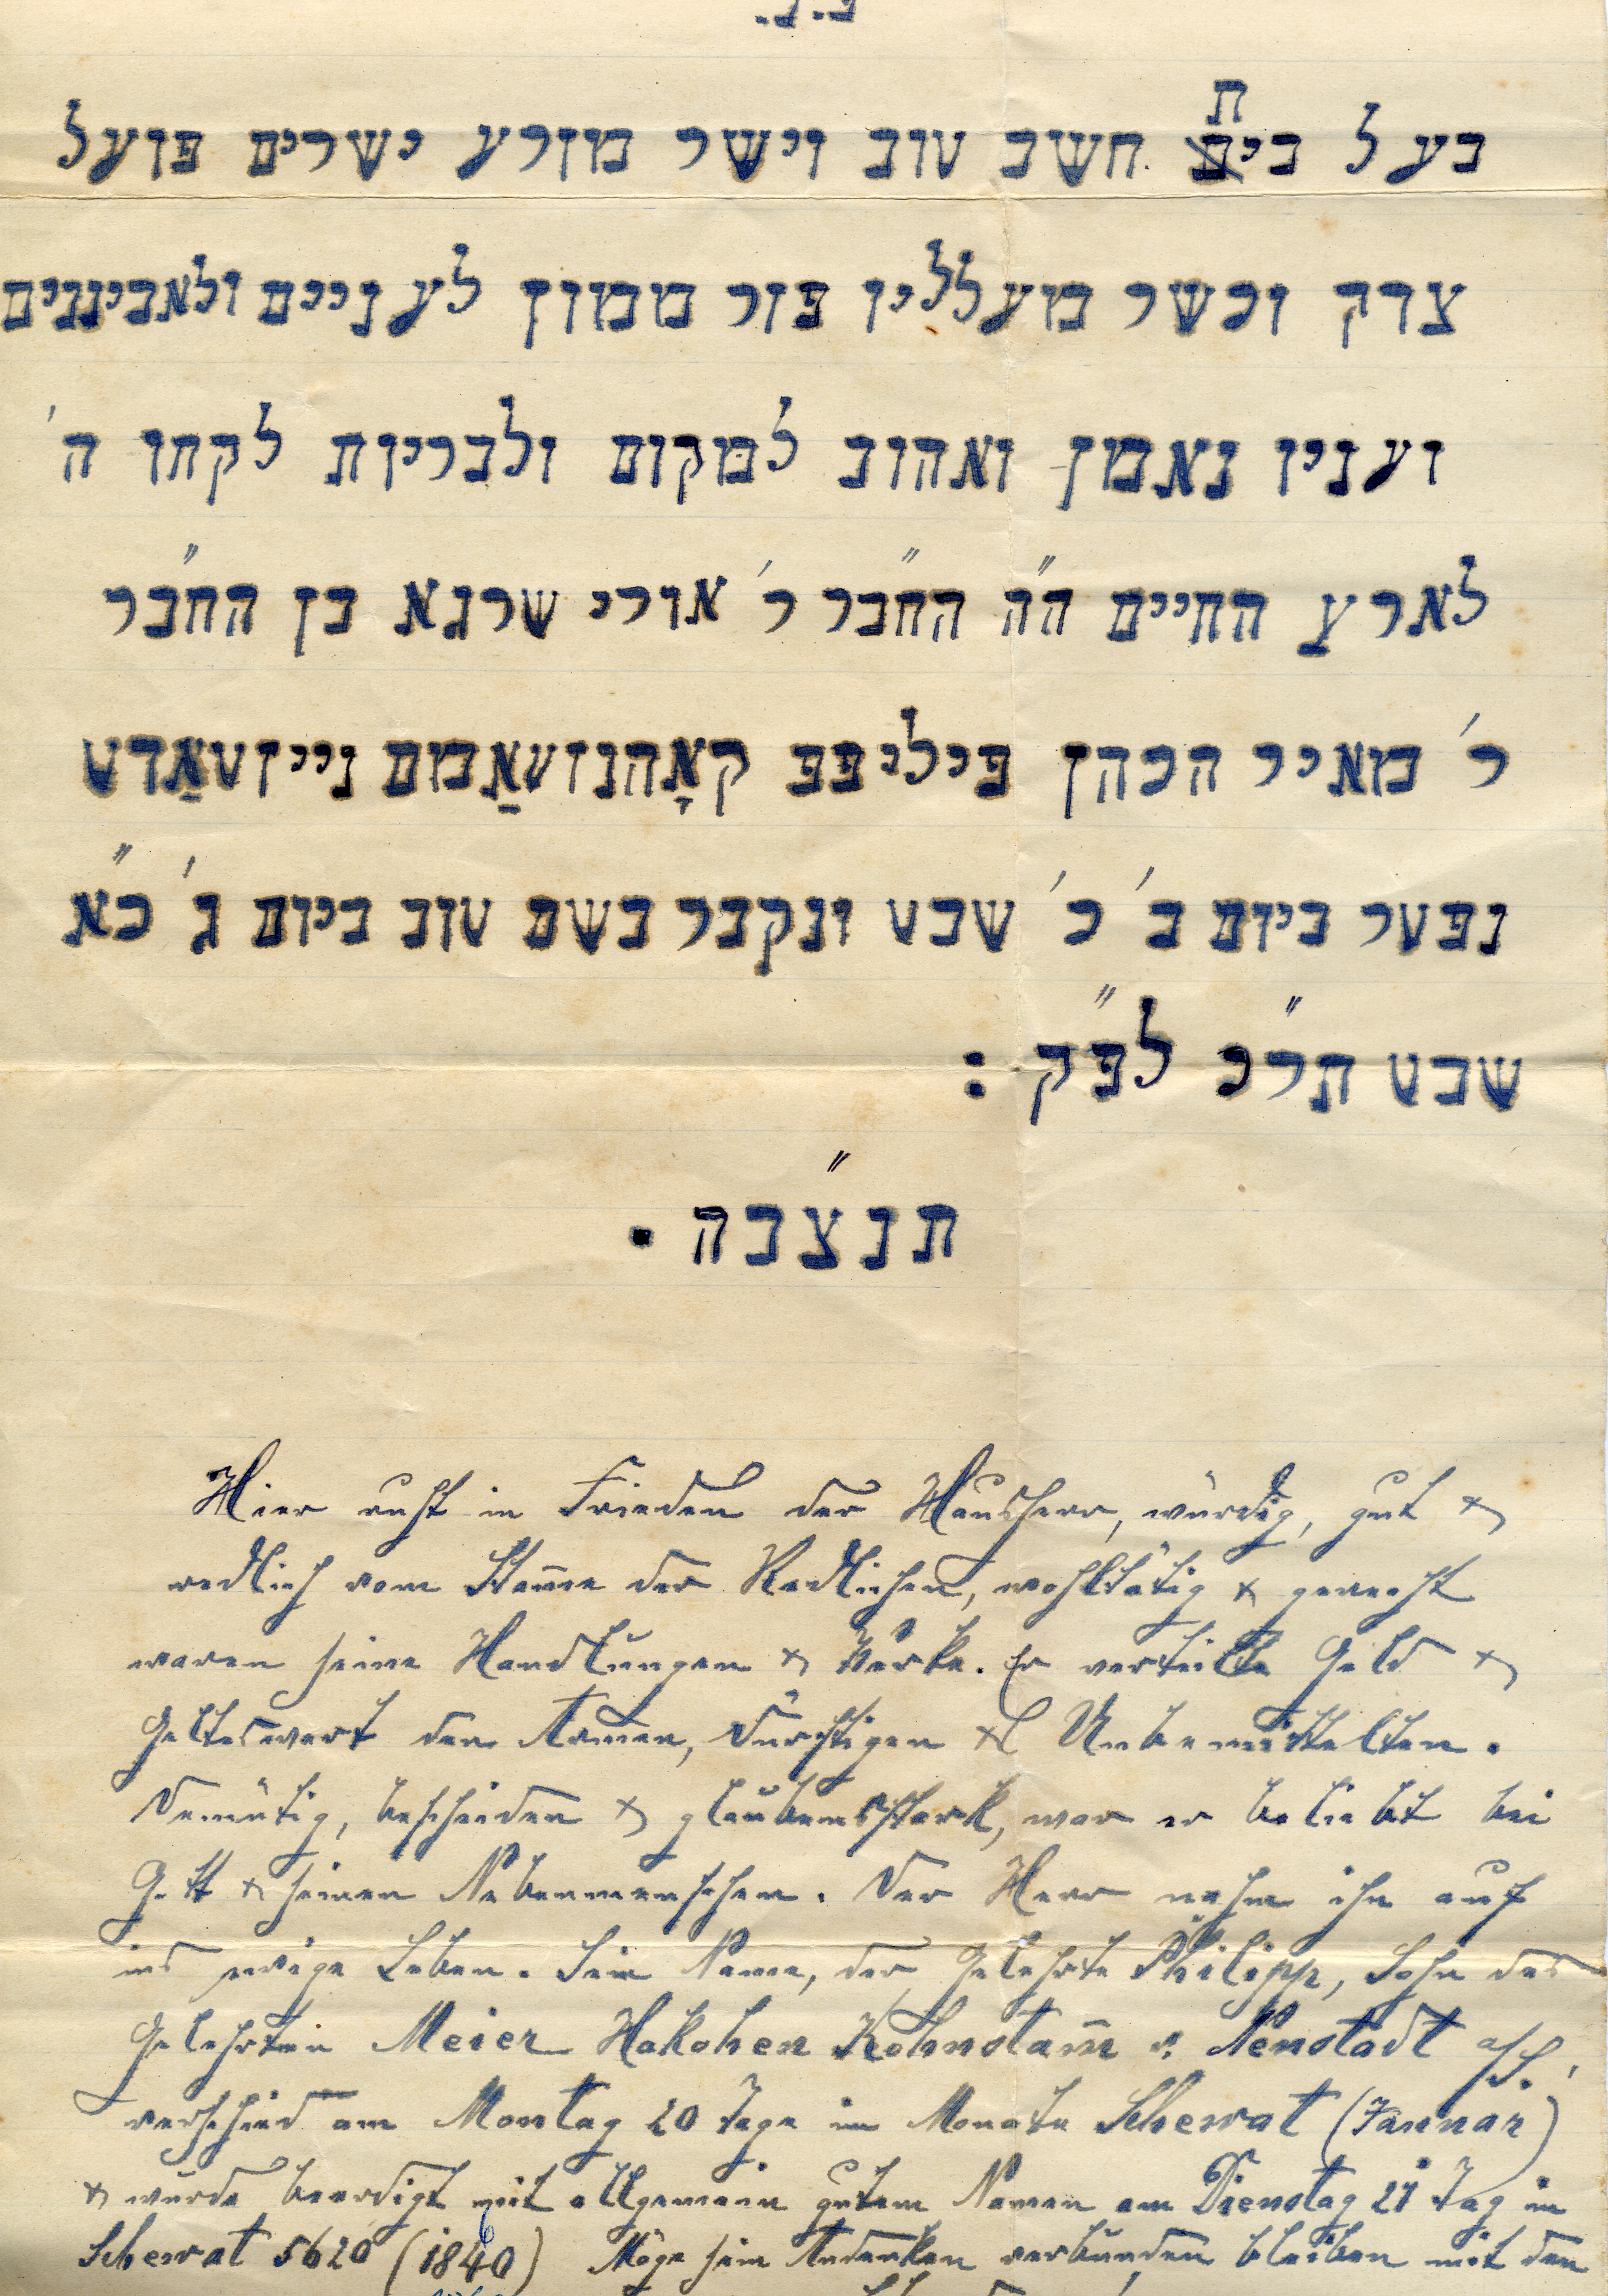 פ.נ.
בעל בית חשב טוב וישר מזרע ישרים פועל
צדק וכשר מעלליו פזר ממון לעניים ולאביונים
ועניו נאמן ואהוב למקום ולבריות לקחו ה'
לארץ החיים ה"ה החבר ר' אורי שרגא בן החבר
ר' מאיר הכהן פיליפפ קאָהנזטאַמם נייזטאַדט
נפטר ביום ב' כ' שבט ונקבר בשם טוב ביום ג' כ"א
שבט תר"כ לפ"ק :
תנצ"בה .
Hier ruht in Frieden der Hausherr, würdig, gut &
redlich vom Stam̄e der Redlichen, wohltätig & gerecht
waren seine Handlungen & Werke. Er verteilte Geld &
Geldeswert den Armen, Dürftigen & Unbemittelten.
Demütig, bescheiden & glaubensstark, war er beliebt bei
Gott & seinen Nebenmenschen. Der Herr nahm ihn auf
ins ewige Leben. Sein Name, der Gelehrte Philipp, Sohn des
Gelehrten Meier Hakohen Kohnstam̄ v. Neustadt
verschied am Montag 20 Tage im Monate Schewat (Januar)
& wurde beerdigt mit allgemein gutem Namen am Dienstag 21 Tag im
Schewat 5620 (1840) Möge sein Andenken verbunden bleiben mit den